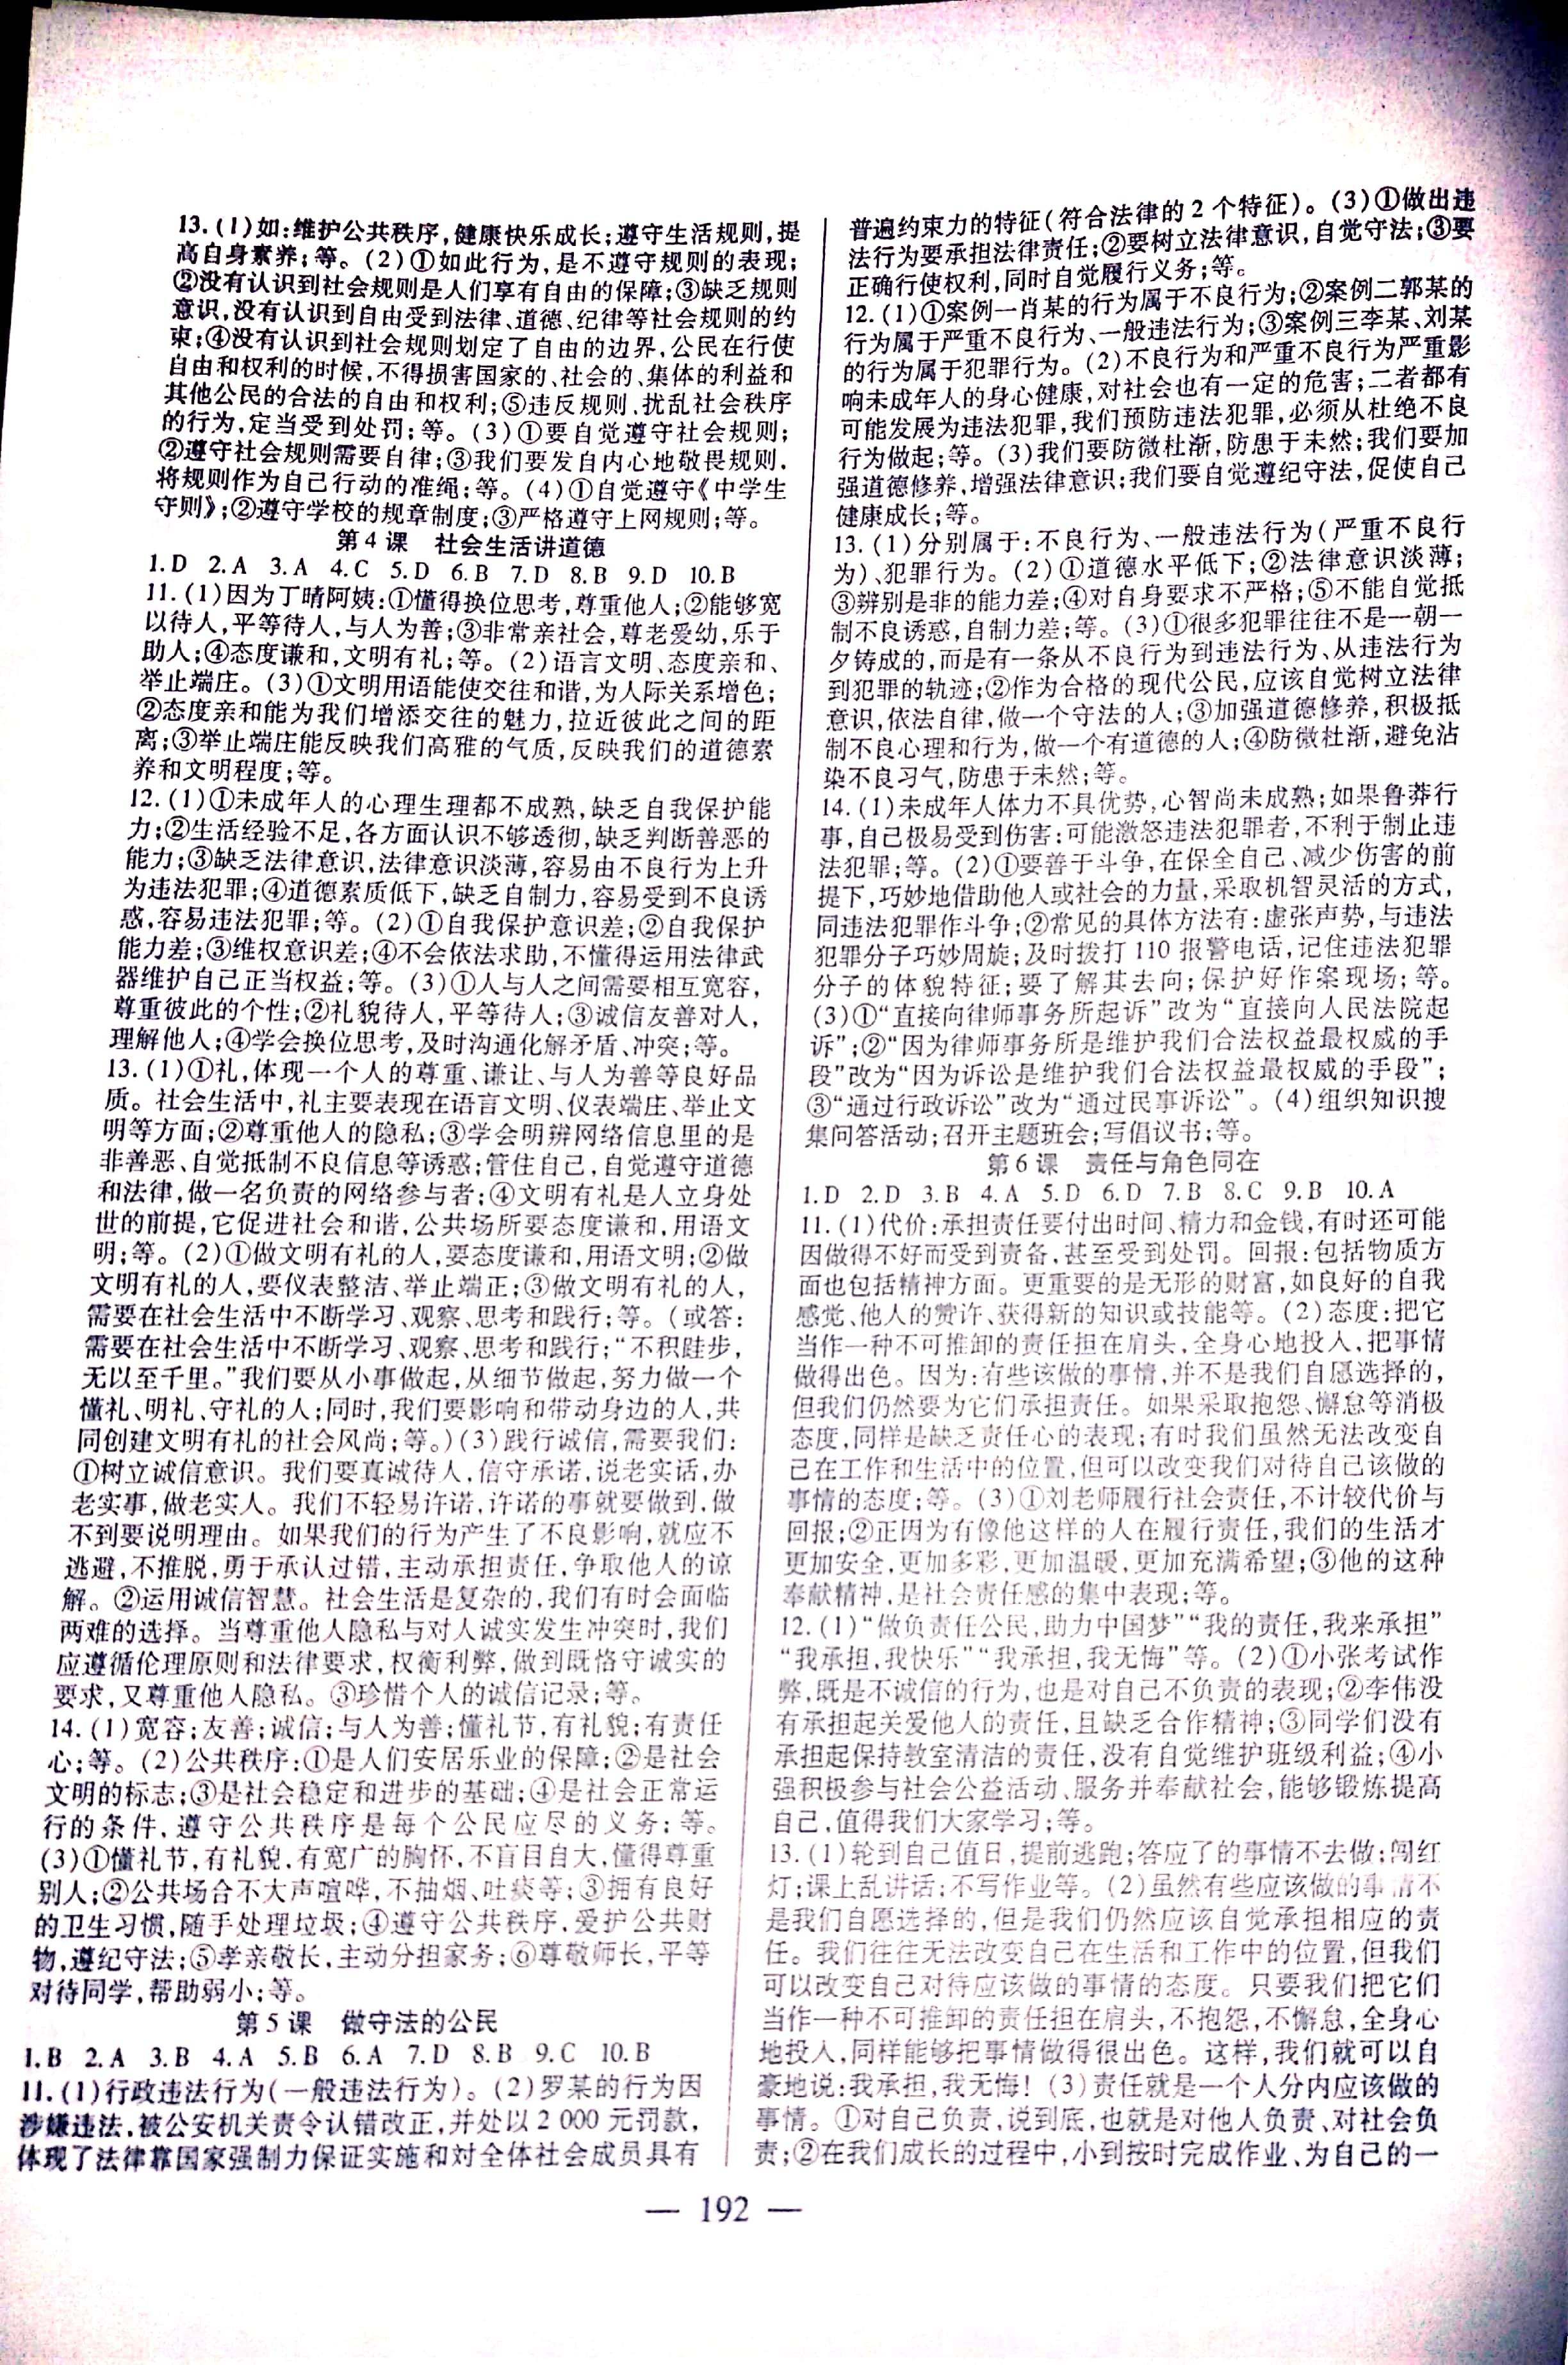 13.(1)如:维护公共秩序,健康快乐成长;遵守生活规则,提
高自身素养;等。(2)①如此行为,是不遵守规则的表现;
②没有认识到社会规则是人们享有自由的保障;③缺乏规则
意识,没有认识到自由受到法律、道德、纪律等社会规则的约
束;④没有认识到社会规则划定了自由的边界,公民在行使
自由和权利的时候,不得损害国家的、社会的、集体的利益和
其他公民的合法的自由和权利;⑤违反规则、扰乱社会秩序
的行为,定当受到处罚;等。(3)①要自觉遵守社会规则;
②遵守社会规则需要自律;③我们要发自内心地敬畏规则,
将规则作为自己行动的准绳;等。(4)①自觉遵守《中学生
守则》;②遵守学校的规章制度;③严格遵守上网规则;等。
第4课 社会生活讲道德
1.D 2.A 3.A 4.C 5.D 6.B 7.D 8.B 9.D 10.B
11.(1)因为丁晴阿姨:①懂得换位思考,尊重他人;②能够宽
以待人,平等待人,与人为善;③非常亲社会,尊老爱幼,乐于
助人;④态度谦和,文明有礼;等。(2)语言文明、态度亲和、
举止端庄。(3)①文明用语能使交往和谐,为人际关系增色;
②态度亲和能为我们增添交往的魅力,拉近彼此之间的距
离;③举止端庄能反映我们高雅的气质,反映我们的道德素
养和文明程度;等。
12.(1)①未成年人的心理生理都不成熟,缺乏自我保护能
力;②生活经验不足,各方面认识不够透彻,缺乏判断善恶的
能力;③缺乏法律意识,法律意识淡薄,容易由不良行为上升
为违法犯罪;④道德素质低下,缺乏自制力,容易受到不良诱
惑,容易违法犯罪;等。(2)①自我保护意识差;②自我保护
能力差;③维权意识差;④不会依法求助,不懂得运用法律武
器维护自己正当权益;等。(3)①人与人之间需要相互宽容,
尊重彼此的个性;②礼貌待人,平等待人;③诚信友善对人,
理解他人;④学会换位思考,及时沟通化解矛盾、冲突;等。
13.(1)①礼,体现一个人的尊重、谦让、与人为善等良好品
质。社会生活中,礼主要表现在语言文明、仪表端庄、举止文
明等方面;②尊重他人的隐私;③学会明辨网络信息里的是
非善恶、自觉抵制不良信息等诱惑;管住自己,自觉遵守道德
和法律,做一名负责的网络参与者;④文明有礼是人立身处
世的前提,它促进社会和谐,公共场所要态度谦和,用语文
明;等。(2)①做文明有礼的人,要态度谦和,用语文明;②做
文明有礼的人,要仪表整洁、举止端正;③做文明有礼的人,
需要在社会生活中不断学习、观察、思考和践行;等。(或答:
需要在社会生活中不断学习、观察、思考和践行;“不积跬步,
无以至千里。”我们要从小事做起,从细节做起,努力做一个
懂礼、明礼、守礼的人;同时,我们要影响和带动身边的人,共
同创建文明有礼的社会风尚;等。)(3)践行诚信,需要我们:
①树立诚信意识。我们要真诚待人,信守承诺,说老实话,办
老实事,做老实人。我们不轻易许诺,许诺的事就要做到,做
不到要说明理由。如果我们的行为产生了不良影响,就应不
逃避,不推脱,勇于承认过错,主动承担责任,争取他人的谅
解。②运用诚信智慧。社会生活是复杂的,我们有时会面临
两难的选择。当尊重他人隐私与对人诚实发生冲突时,我们
应遵循伦理原则和法律要求,权衡利弊,做到既恪守诚实的
要求,又尊重他人隐私。③珍惜个人的诚信记录;等。
14.(1)宽容;友善;诚信;与人为善;懂礼节,有礼貌;有责任
心;等。(2)公共秩序:①是人们安居乐业的保障;②是社会
文明的标志;③是社会稳定和进步的基础;④是社会正常运
行的条件,遵守公共秩序是每个公民应尽的义务;等。
(3)①懂礼节,有礼貌,有宽广的胸怀,不盲目自大,懂得尊重
别人;②公共场合不大声喧哗,不抽烟、吐痰等;③拥有良好
的卫生习惯,随手处理垃圾;④遵守公共秩序,爱护公共财
物,遵纪守法;⑤孝亲敬长,主动分担家务;⑥尊敬师长,平等
对待同学,帮助弱小;等。
第5课 做守法的公民
1.B 2.A 3.B 4.A 5.B 6.A 7.D 8.B 9.C 10.B
11.(1)行政违法行为(一般违法行为)。(2)罗某的行为因
涉嫌违法,被公安机关责令认错改正,并处以2 000元罚款,
体现了法律靠国家强制力保证实施和对全体社会成员具有
普遍约束力的特征(符合法律的2个特征)。(3)①做出违
法行为要承担法律责任;②要树立法律意识,自觉守法;③要
正确行使权利,同时自觉履行义务;等。
12.(1)①案例一肖某的行为属于不良行为;②案例二郭某的
行为属于严重不良行为、一般违法行为;③案例三李某、刘某
的行为属于犯罪行为。(2)不良行为和严重不良行为严重影
响未成年人的身心健康,对社会也有一定的危害;二者都有
可能发展为违法犯罪,我们预防违法犯罪,必须从杜绝不良
行为做起;等。(3)我们要防微杜渐,防患于未然;我们要加
强道德修养,增强法律意识;我们要自觉遵纪守法,促使自己
健康成长;等。
13.(1)分别属于:不良行为、一般违法行为(严重不良行
为)、犯罪行为。(2)①道德水平低下;②法律意识淡薄;
③辨别是非的能力差;④对自身要求不严格;⑤不能自觉抵
制不良诱惑,自制力差;等。(3)①很多犯罪往往不是一朝一
夕铸成的,而是有一条从不良行为到违法行为、从违法行为
到犯罪的轨迹;②作为合格的现代公民,应该自觉树立法律
意识,依法自律,做一个守法的人;③加强道德修养,积极抵
制不良心理和行为,做一个有道德的人;④防微杜渐,避免沾
染不良习气,防患于未然;等。
14.(1)未成年人体力不具优势,心智尚未成熟;如果鲁莽行
事,自己极易受到伤害;可能激怒违法犯罪者,不利于制止违
法犯罪;等。(2)①要善于斗争,在保全自己、减少伤害的前
提下,巧妙地借助他人或社会的力量,采取机智灵活的方式,
同违法犯罪作斗争;②常见的具体方法有:虚张声势,与违法
犯罪分子巧妙周旋;及时拨打110报警电话,记住违法犯罪
分子的体貌特征;要了解其去向;保护好作案现场;等。
(3)①“直接向律师事务所起诉”改为“直接向人民法院起
诉”;②“因为律师事务所是维护我们合法权益最权威的手
段”改为“因为诉讼是维护我们合法权益最权威的手段”;
③“通过行政诉讼”改为“通过民事诉讼”。(4)组织知识搜
集问答活动;召开主题班会;写倡议书;等。
第6课 责任与角色同在
1.D 2.D 3.B 4.A 5.D 6.D 7.B 8.C 9.B 10.A
11.(1)代价:承担责任要付出时间、精力和金钱,有时还可能
因做得不好而受到责备,甚至受到处罚。回报:包括物质方
面也包括精神方面。更重要的是无形的财富,如良好的自我
感觉、他人的赞许、获得新的知识或技能等。(2)态度:把它
当作一种不可推卸的责任担在肩头,全身心地投入,把事情
做得出色。因为:有些该做的事情,并不是我们自愿选择的,
但我们仍然要为它们承担责任。如果采取抱怨、懈怠等消极
态度,同样是缺乏责任心的表现;有时我们虽然无法改变自
己在工作和生活中的位置,但可以改变我们对待自己该做的
事情的态度;等。(3)①刘老师履行社会责任,不计较代价与
回报;②正因为有像他这样的人在履行责任,我们的生活才
更加安全,更加多彩,更加温暖,更加充满希望;③他的这种
奉献精神,是社会责任感的集中表现;等。
12.(1)“做负责任公民,助力中国梦”“我的责任,我来承担”
“我承担,我快乐”“我承担,我无悔”等。(2)①小张考试作
弊,既是不诚信的行为,也是对自己不负责的表现;②李伟没
有承担起关爱他人的责任,且缺乏合作精神;③同学们没有
承担起保持教室清洁的责任,没有自觉维护班级利益;④小
强积极参与社会公益活动、服务并奉献社会,能够锻炼提高
自己,值得我们大家学习;等。
13.(1)轮到自己值日,提前逃跑;答应了的事情不去做;闯红
灯;课上乱讲话;不写作业等。(2)虽然有些应该做的事情不
是我们自愿选择的,但是我们仍然应该自觉承担相应的责
任。我们往往无法改变自己在生活和工作中的位置,但我们
可以改变自己对待应该做的事情的态度。只要我们把它们
当作一种不可推卸的责任担在肩头,不抱怨,不懈怠,全身心
地投入,同样能够把事情做得很出色。这样,我们就可以自
豪地说:我承担,我无悔!(3)责任就是一个人分内应该做的
事情。①对自己负责,说到底,也就是对他人负责、对社会负
责;②在我们成长的过程中,小到按时完成作业、为自己的一
— 192 —